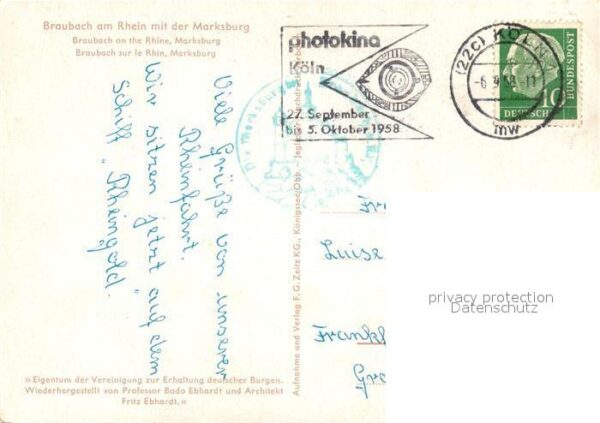 Braubach am Rhein mit der Marksburg
Braubach on the Rhine, Marksburg
Braubach sur le Rhin, Marksburg
photokina
Köln
27. September
bis 5. Oktober 1958
(22c) KÖLN
-6.9.58.-11
mw
DEUTSCHE
BUNDESPOST
10
Die Marksburg
Viele Grüße von unserer
Rheinfahrt.
Wir sitzen jetzt auf dem
Schiff „Rheingold."
Aufnahme und Verlag F. G. Zeitz KG., Königssee/Obb.
Fr
Luise
Frankf
Gr
privacy protection
Datenschutz
»Eigentum der Vereinigung zur Erhaltung deutscher Burgen.
Wiederhergestellt von Professor Bodo Ebhardt und Architekt
Fritz Ebhardt.«